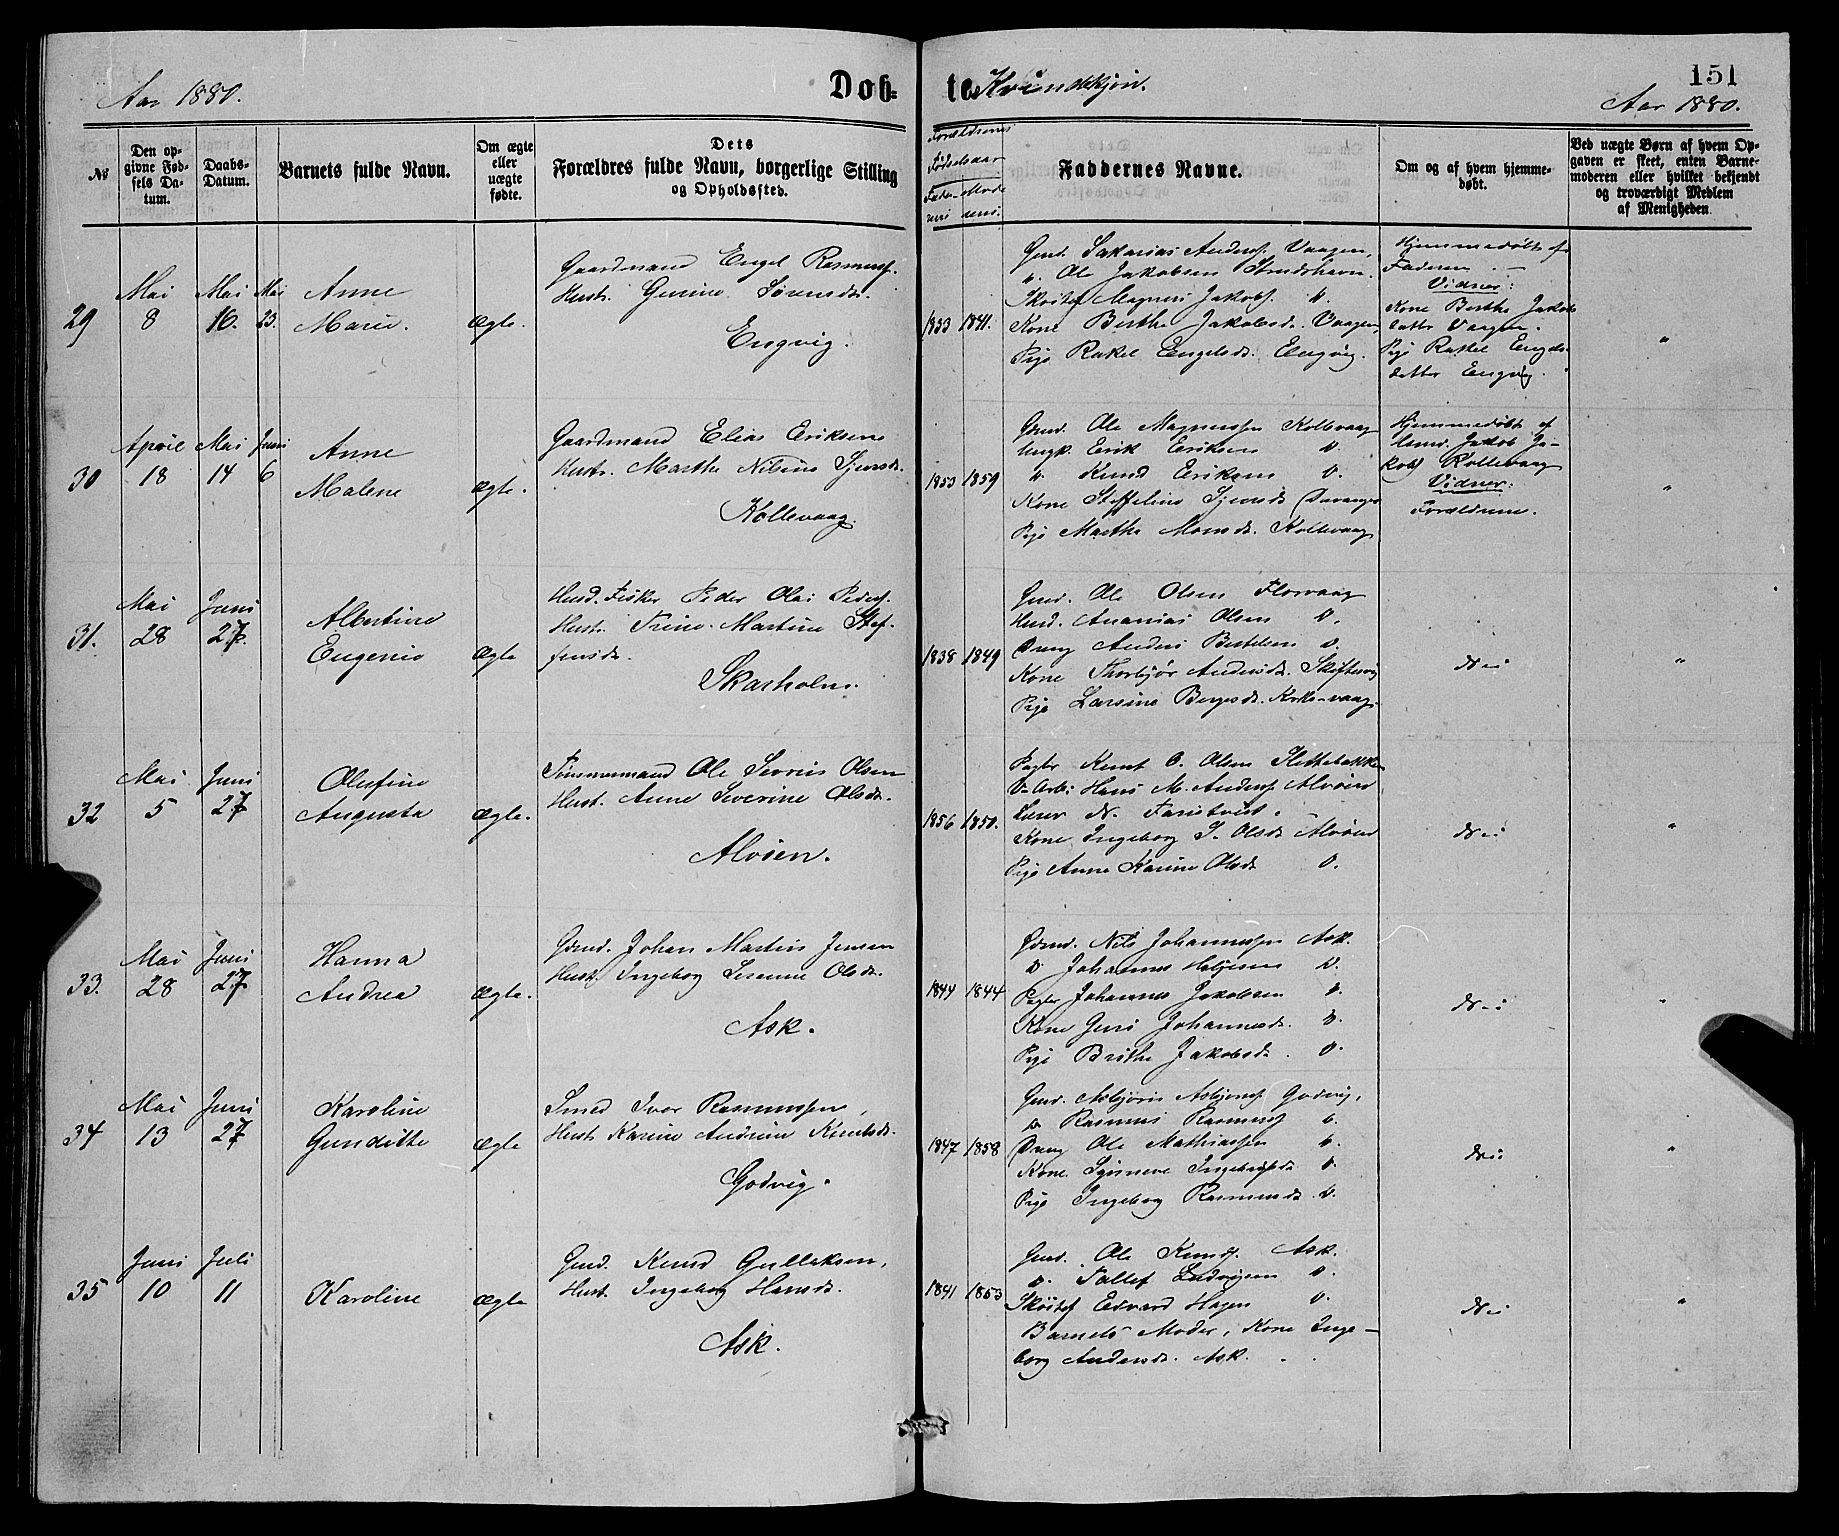 Aar 1880.
Døb=
te Kvindekjøn.
151
Aar 1880.
№
Den op-
givne Fød-
sels Da-
tum.
Daabs-
Datum.
Barnets fulde Navn.
Om ægte
eller
uægte
fødte.
Dets
Forældres fulde Navn, borgerlige Stilling
og Opholdssted.
Forældrenes
Fødselsaar
Fade- Mode
rens rens.
Faddernes Navne.
Om og af hvem hjemme-
døbt.
Ved uægte Børn af hvem Op-
gaven er skeet, enten Barne-
moderen eller hvilket bekjendt
og troværdigt Medlem
af Menigheden
29
Mai
8
Mai
16.
Mai
23.
Anne
Marie.
Ægte.
Gaardmand Engel Rasmuss.
Hustr. Gurine Sørensdr.
Engvig.
1833 1841.
Gmd. Sakarias Anders. Vaagen,
". Ole Jakobsen Strudshavn.
Magnus Jakobs. ".
Kone Berthe Jakobsdr. Vaagen,
Pige Rakel Engelsdr. Engvig.
Hjemmedøbt af
Faderen. –
Vidner:
Kone Berthe Jakobs
datter Vaagen.
Pige Rakel Engels-
datter Engvig.
"
30
April
18
Mai
14
Juni
6
Anne
Malene
Ægte.
Gaardmand Elias Eriksen
Hustr. Marthe Nilsine Sjursdr.
Kollevaag.
1853 1859
Gmd. Ole Magnussen Kollevaag
Ungk. Erik Eriksen D.
". Knud Eriksen D.
Kone Steffeline Sjursdr. Davanger
Pige Marthe Monsdr. Kollevaag
Hjemmedøbt af
Gmd. Jakob Ja-
kobs. Kollevaag
Vidner:
Forældrene.
"
31.
Mai
28
Juni
27.
Albertine
Eugenie
Ægte
Husd. Fisker Peder Olai Peders.
Hustr. Trine Martine Stef-
fensdr.
Skarholm.
1838 1849
Gmd. Ole Olsen Florvaag
Husd. Ananias Olsen D.
Dreng Anders Bertelsen D.
Kone Thorbjør Andersdr. Skiftesvig
Pige Larsine Børgesdr.
Nei
"
32
Mai
5
Juni
27
Olufine
Augusta
Ægte.
Tømmermand Ole Severin Olsen
Hust. Anne Severine Olsdr.
Alvøen.
1856 1850.
Pagter Knut O. Olsen
Hans M. Anders. Alvøen
Lærer N.
Kone Ingeborg S. Olsdr. Alvøen
Pige Anne Karine Olsdr D.
Nei
"
33.
Mai
28
Juni
27
Hanna
Andrea
Ægte.
Gmd. Johan Martin Jensen
Hust. Ingeborg Susanne Olsdr.
Ask.
1844 1844
Gmd. Nils Johannessen Ask.
D. Johannes Helgesen D.
Pagter Johannes Jakobsen D.
Kone Guri Johannesdr. D.
Pige Brithe Jakobsdr. D.
Nei
"
34
Mai
13
Juni
27
Karoline
Gunditte
Ægte
Smed Ivar Rasmussen,
Hustr. Karine Andrine Knutsdr.
Godvig.
1847 1858
Gmd. Asbjørn Asbjørns. Godvig,
D. Rasmus Rasmuss. D.
Dreng Ole Mathiassen D.
Kone Synneve Ingebrigtsdr. D.
Pige Ingeborg Rasmusdr. D.
Nei
"
35
Juni
10
Juli
11
Karoline
Ægte
Gmd. Knud Gullaksen,
Hust. Ingeborg Hansdr.
Ask.
1841 1853
Gmd. Ole Knuds. Ask.
D. Tollef Ludvigsen D.
Edvard Hagen D.
Barnets Moder, Kone Inge-
borg Andersdr. Ask.
Nei
"